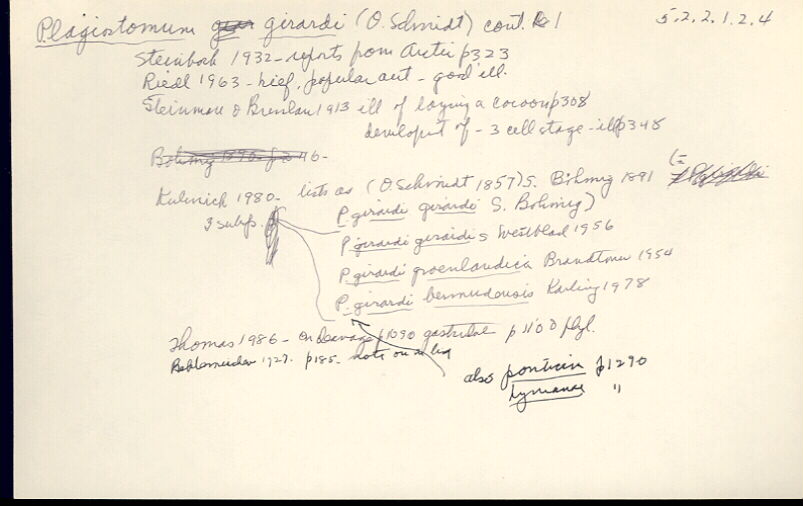 Plagiostomum girardi (O. Schmidt) cont. 1 5.2.2.1.2.4
Steinbock 1932 - reports from Arctic p323
Riedl 1963 - brief, popular acct - good ill.
Steinmann & Bresslau 1913 ill of laying a cocoon p308
developmt of - 3 cell stage - ill p348
Bohmig 1896 - 46 -
Kulinich 1980 - lists as (O. Schmidt 1857) S. Bohmig 1891
3 subsp. P. girardi girardi S. Bohmig)
P. girardi Westblad 1956
P. girardi groenlandica Brandtner 1954
P. girardi bermudensis Karling 1978
Thomas 1986 - on cleavage p1090 p1100 phyl.
1927. p185 - note on
also ponticum p1290
hymanae "